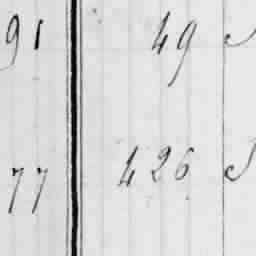 91 49
77 426